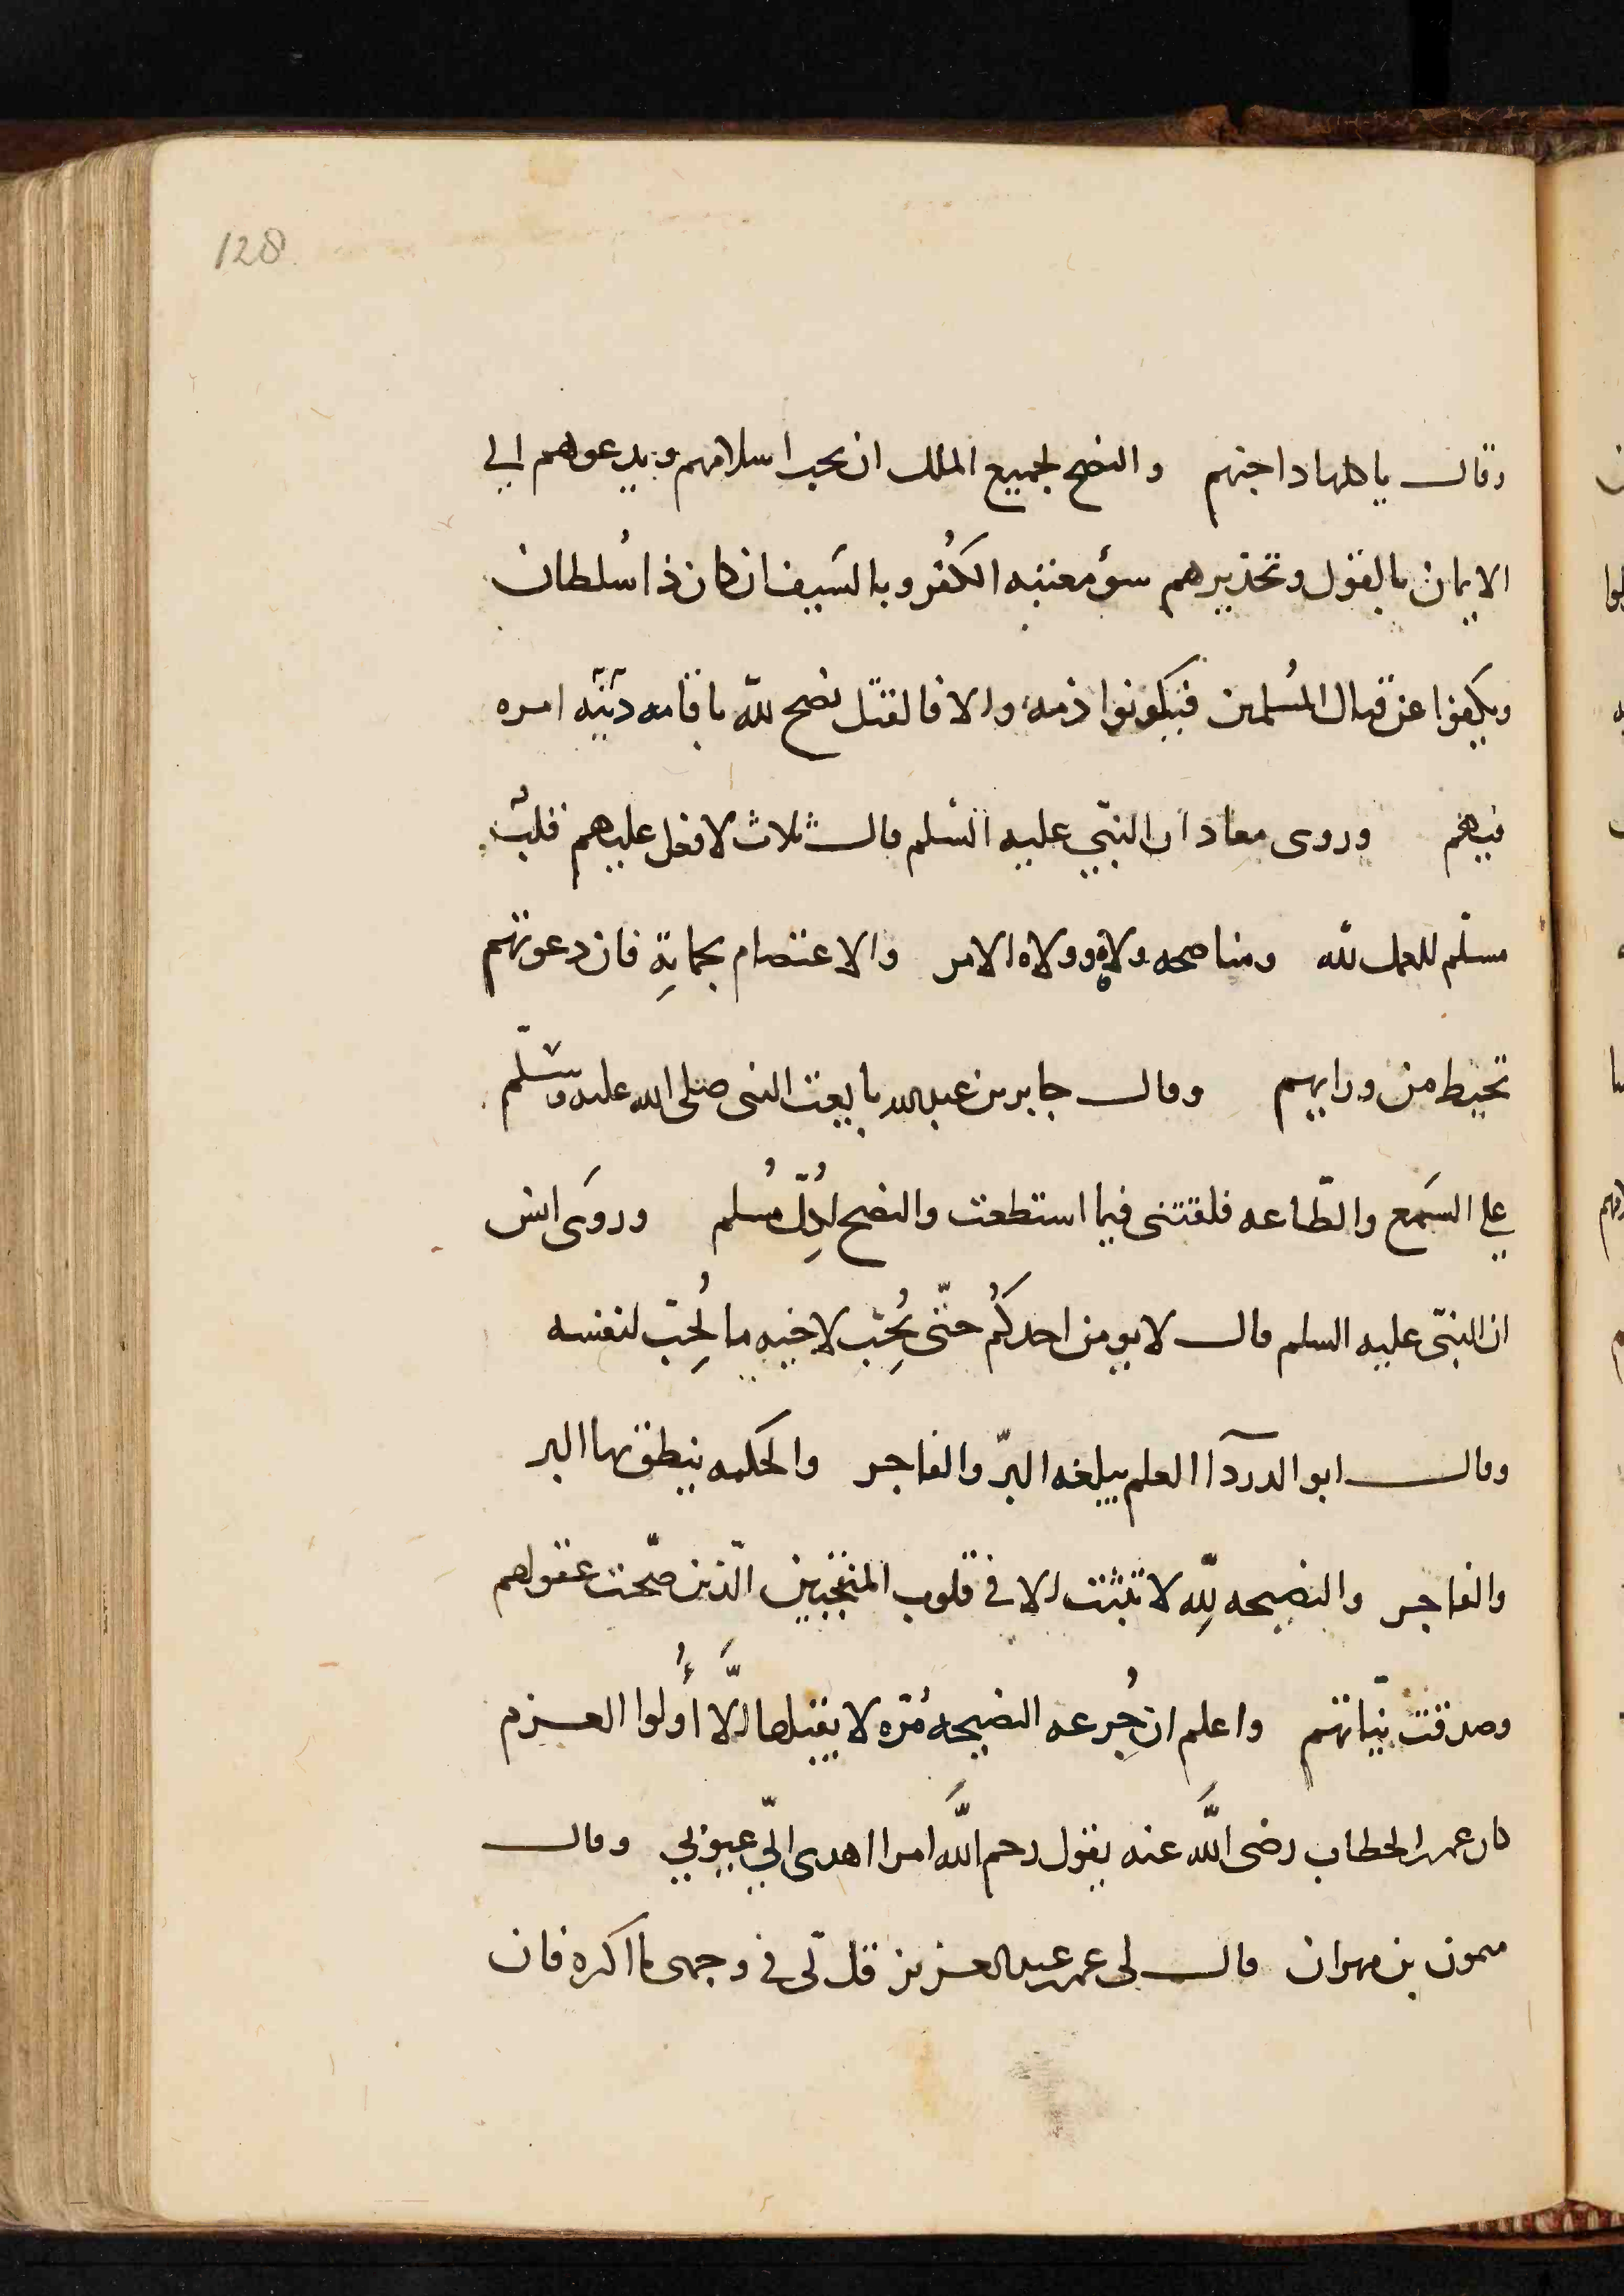 128
وقال باظهاد اجنهم والنصح لجميع الملل ان يحب اسلامهم ويدعوهم الي
الايمان بالقول وتحذيرهم سؤ مغبته الكُفر وبالسَيف ان كان ذا سُلطان
ويكفوا عن قتال المُسلمين فيكونوا ذمه والا فالقتل نصح لله باقامه امره
فيهم وروى معاد ان النبي عليه السلم قال ثلاث لا يغل عليهم قلب
مسلم للعمل لله ومناصحه ولاة وولاه الامر والاعتصام بجماية فان دعوتهم
تحيط من ورايهم وقال جابر بن عبد الله بايعت النبى صلى الله عليه وسلّم
علي السَمع والطّاعه فلقتنى فيما استطعت والنصح لِكُلّ مُسلم وروَى انس
ان النبيّ عليه السلم قال لا يومن احدكُم حتّى يُحِبّ لاخيه ما يُحِبّ لنفسه
وقال ابو الدردآ العلم يبلغه البرّ والفاجر والحكمه ينطق بها البر
والفاجر والنصيحه لِلّه لا تثبت الا في قلوب المنتخبين الّذين صّحت عقولهم
وصدقت نيّاتهم واعلم ان جُرعه النصيحه مُرّه لا يقبلها الَّا أُولوا العزم
كان عمر بن الخطاب رضى اللَّه عنه يقول رحم اللَّه امرا اهدى اليّ عيوبي وقال
ميمون بن مهران قال لى عمر بن عبد العزيز قل لى في وجهى ما اكره فان